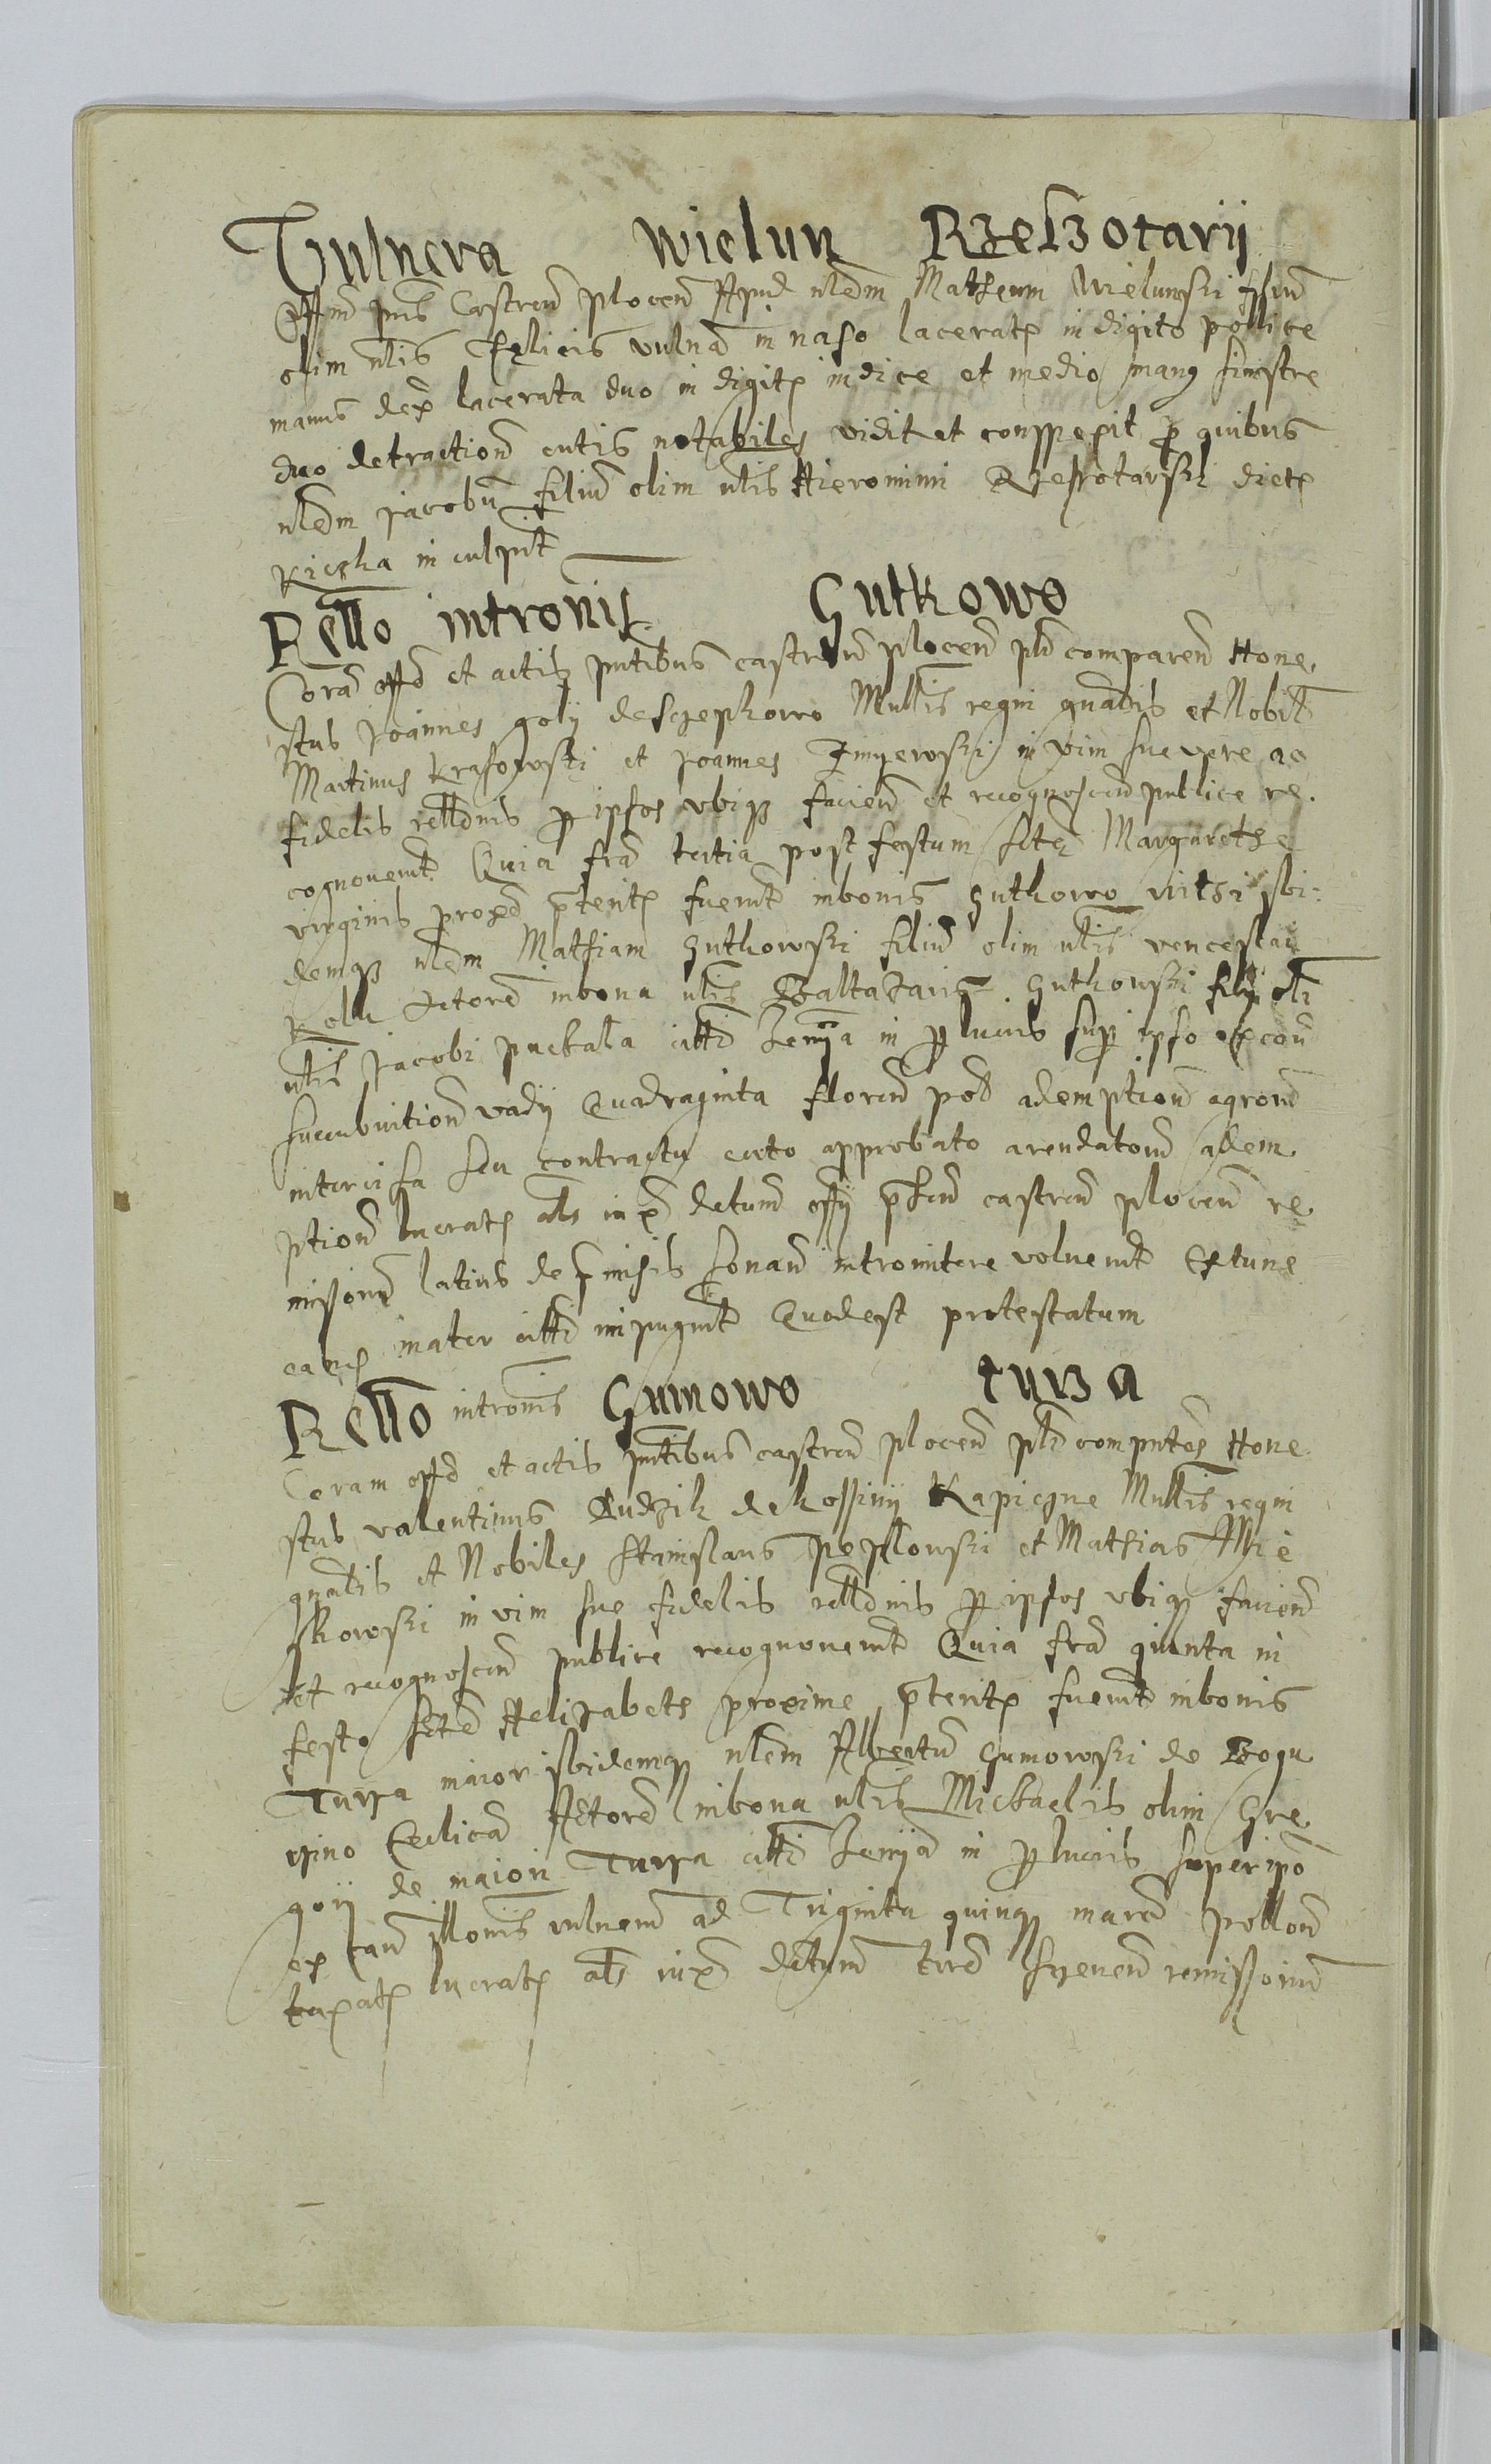 Vulnera Wielun Rzeszotarij
Offm pns Castren plocen Apud nlem Matheum Wielunski filium
olim nlis Felicis vulna in naso laceratum in digito pollice
manus dex lacerata duo in digitis indice et medio manus sinistre
duo detraction cutis notabiles vidit et conspexit p quibus
nlem Jacobum filium olim nlis Hieronimi Rzeszotarski dictum
Kiczka inculpavit
Rello intromis Gutkowo
Cora offo et actis pntibus castren plocen psl comparen Hone
stus Joannes goly de Szczepkowo Mnllis regni gnalis et Nobil
Martinus Krasowski et Joannes Zmijewski in vim sue vere ac
fidelis rellonis p ipsos ubiq facien et recognoscen publice re
cognovernt Quia fra tertia post festum scte Margarethe
virginis proxe preteritum fuernt in bonis Gutkowo ibi
demq nlem Mathiam Gutkowski filium olim nlis venceslai
Actorem in bona nlis Baltazaris Gutkowski filij oli
nlis Jacobi puckala in p lucris sup ipso ex con
succubuition vadij Quadraginta floren pol ademption agrorum
intercisa seu contractu certo approbato arendatorum adem
ption lucratis als iuxta detum offij pnten castren plocen re
missorum latius de pmissis sonan intromittere voluernt Extunc
mater impugnit Quod est protestatum
Rello intromis Gumowo Turza
Coram offo et actis pntibus castren plocen psl compntes Hone
stus valentinus Rudzik de Kossinij Kapiczne Mnllis regni
gnalis et Nobiles Stanislaus Peplowski et Mathias Mie
skowski in vim sue fidelis rellonis p ipsos ubiq facien
et recognoscen publice recognovernt Quia fra quinta in
festo scte Helizabeth proxime preteritum fuernt in bonis
Turza maiori ibidemq nlem Albertum Gumowski de Bogu
Actorem in bona nlis Michaelis olim Gre
gorij de maiori Turza in p lucris super ipso
ex cau vulnerum ad Triginta quinq marcas pollon
taxatis lucratis als iuxta detum terre remissorium